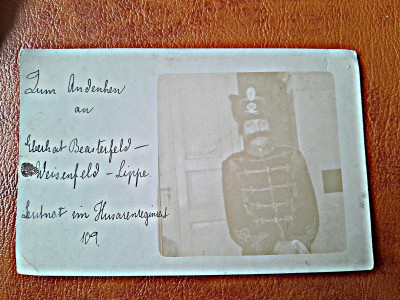 Zum Andenken
an
Eberhat Beasterfeld –
Weisenfeld – Lippe.
Leutnat im Husarenregiment
109.